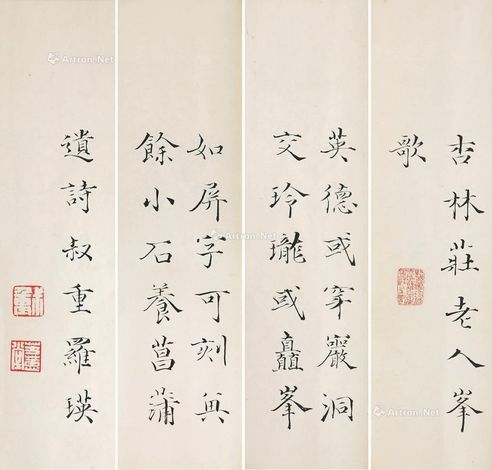 杏林莊老人峯
歌
英德或穿巖洞
交玲瓏或矗峯
如屏字可刻其
餘小石養菖蒲
遺詩叔重羅瑛
Artron.Net
Artron.Net
Artron.Net
Artron.Net